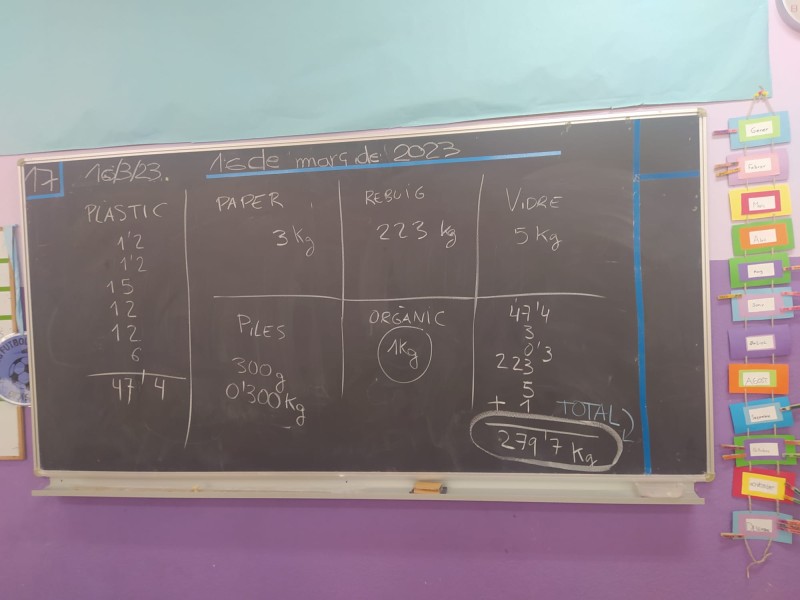 17
16/3/23.
16 de març de 2023
PLÀSTIC
1'2
1'2
15
12
12
6
47'4
PAPER
3 kg
REBUIG
223 kg
VIDRE
5 Kg
PILES
300 g
0'300 Kg
ORGÀNIC
1Kg
47'4
3
0'3
223
5
+ 1
TOTAL
279'7 Kg
Gener
Febrer
Març
Abril
Maig
Juliol
Agost